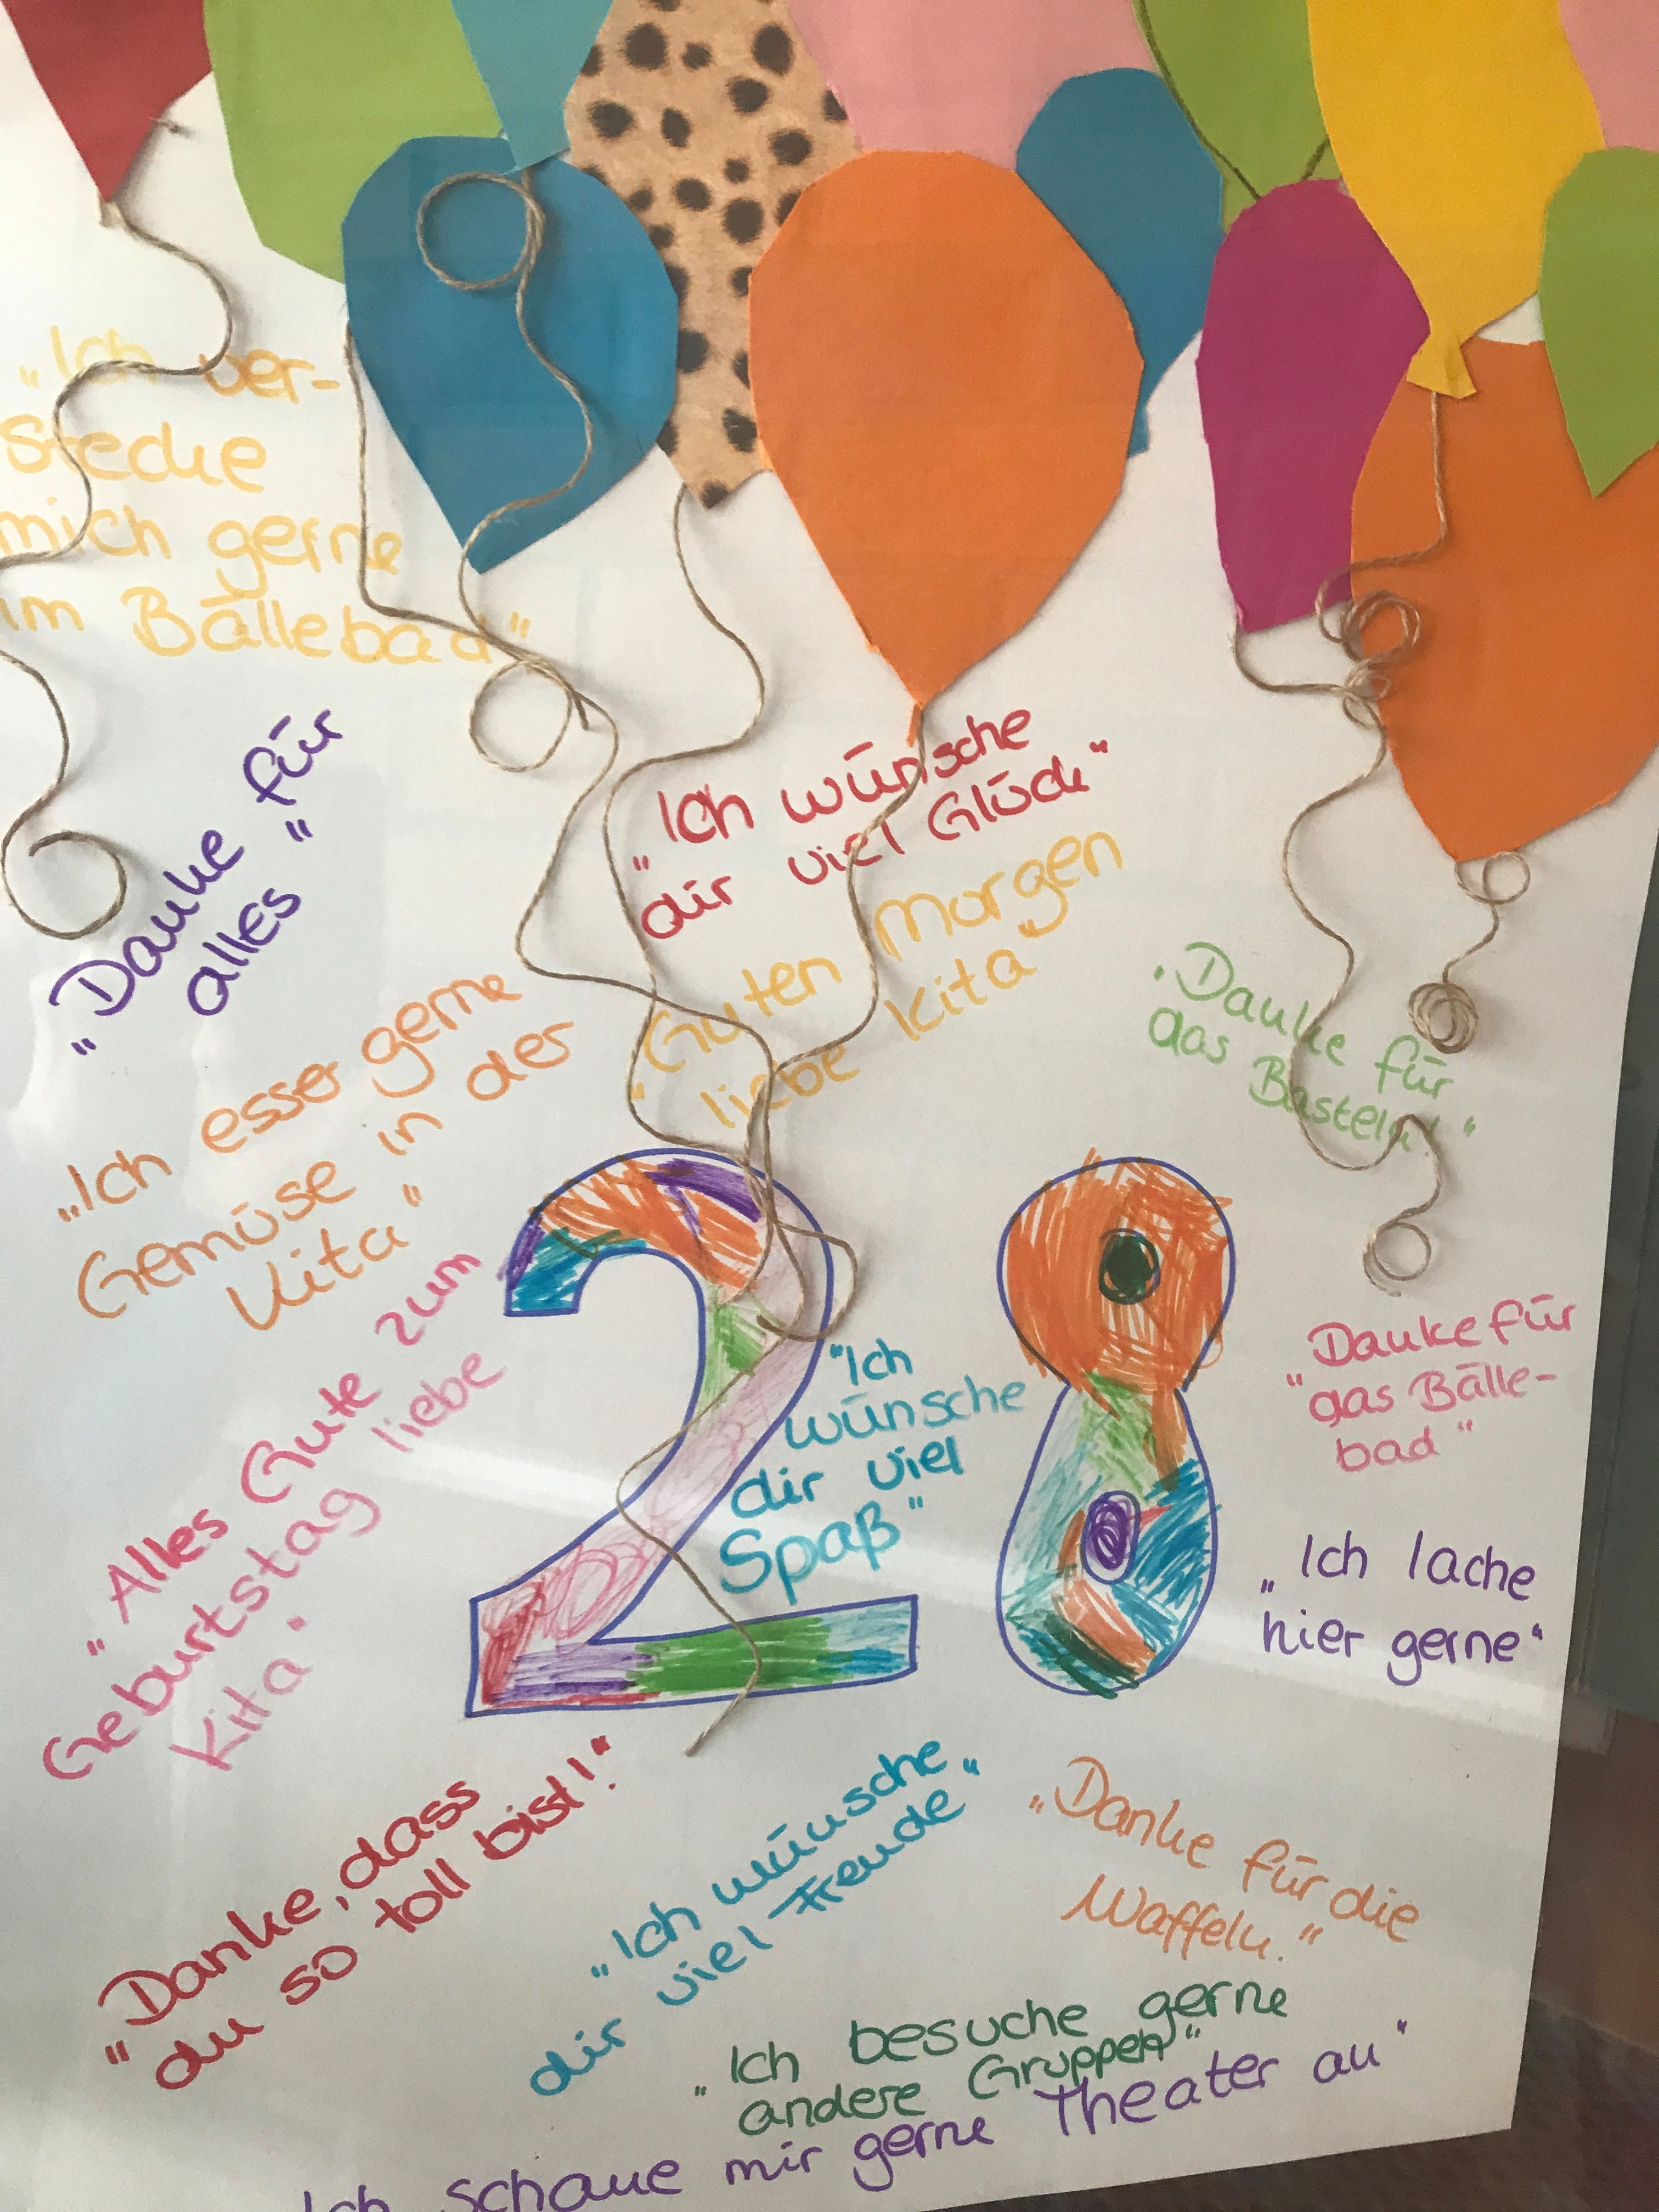 „Ich ver-
stecke
mich gerne
im Bällebad"
„Danke für
alles"
„Ich wünsche
dir viel Glück"
„Guten Morgen
liebe Kita"
„Ich esse gerne
Gemüse in der
Kita"
„Danke für
das Basteln!"
28
"Ich
wünsche
dir viel
Spaß"
Danke für
"das Bälle-
bad"
„Alles Gute zum
Geburtstag liebe
Kita"
„Ich lache
hier gerne"
"Danke, dass
du so toll bist!"
„Ich wünsche"
dir viel Freude"
„Danke für die
Waffeln."
„Ich besuche gerne
andere Gruppen"
Ich schaue mir gerne Theater an"